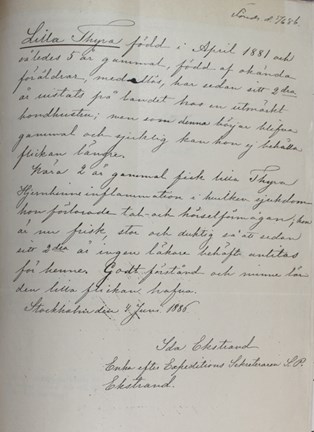 Lilla Thyra född i April 1881 och
således 5 år gammal, född af okända
föräldrar, har sedan sitt 2dra
år vistats på landet hos en utmärkt
bondhustru; men som denna börjar blifva
gammal och sjuklig kan hon ej behålla
flickan längre.
2 år gammal fick lilla Thyra
Hjernhinneinflammation i hvilken sjukdom
hon förlorade tal- och hörselförmågan; hon
är nu frisk, stor och duktig så att sedan
sitt 2dra år ingen läkare behöft anlitas
för henne. Godt förstånd och minne lär
den lilla flickan hafva.
Stockholm den Juni 1886
Ida Ekstrand
Enka efter Expeditions Sekreteraren S. P.
Ekstrand.